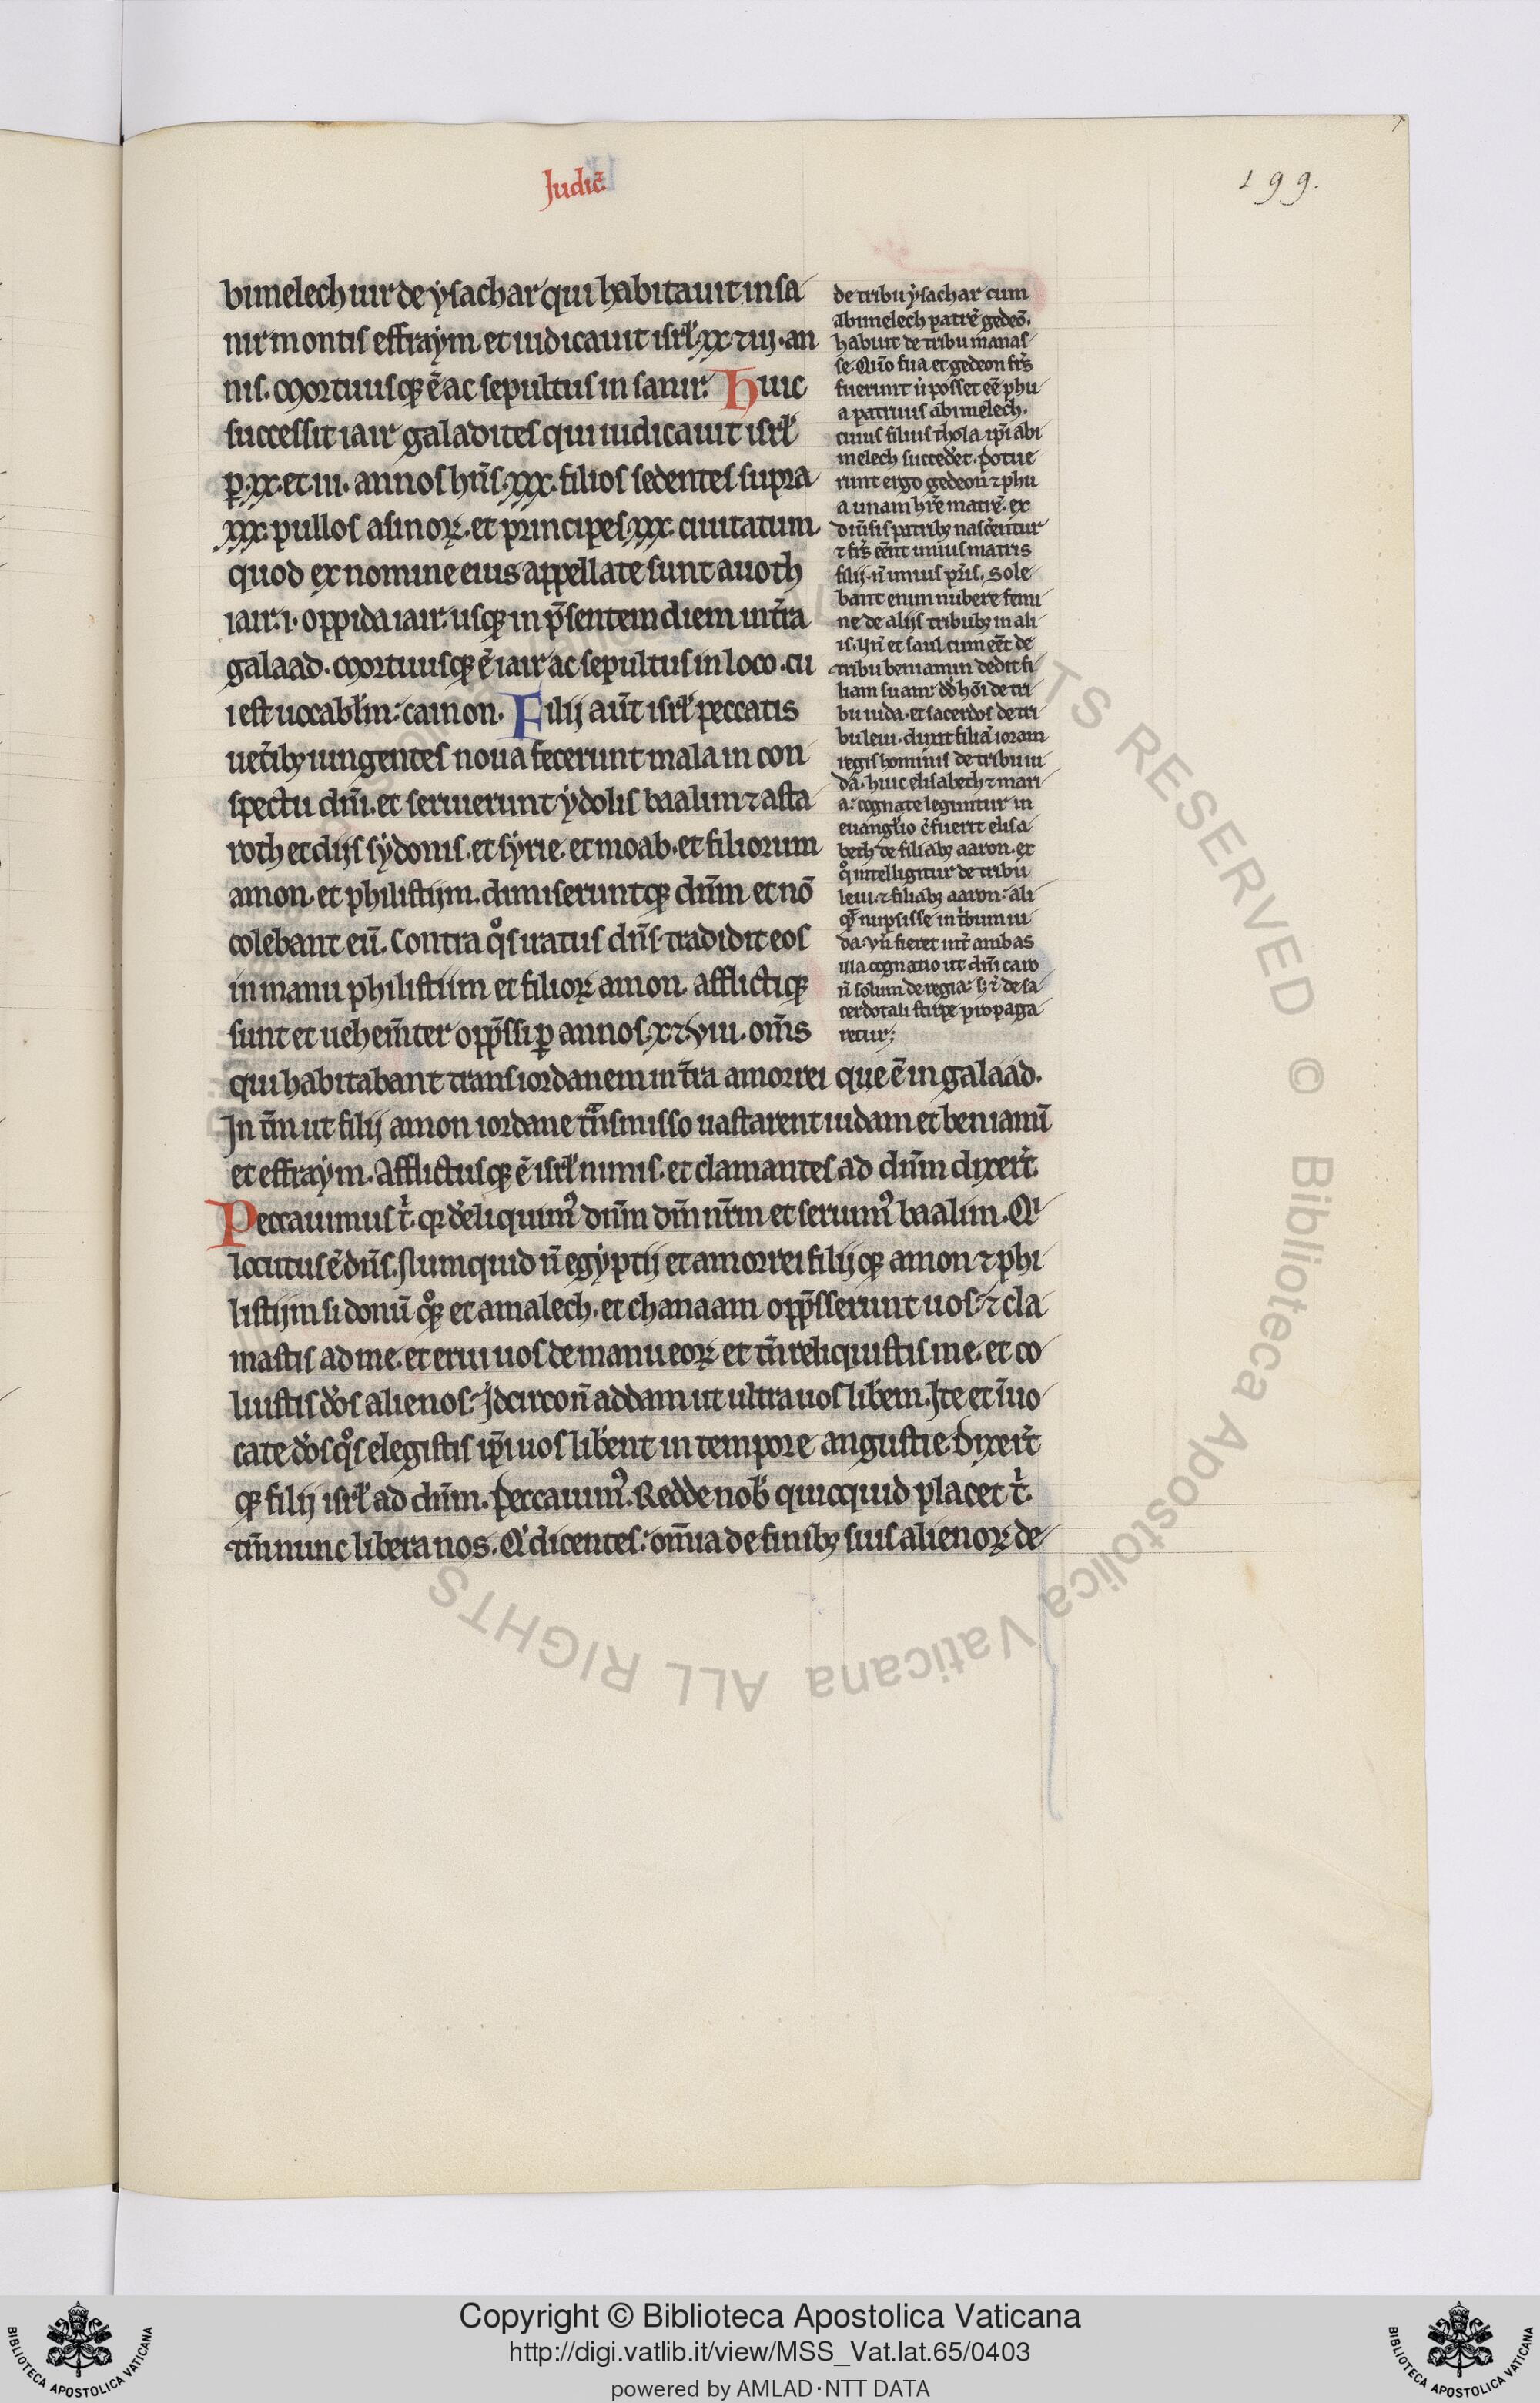 Judic̄.
199.
bimelech uir de ẏsachar qui habitauit in sa
nir montis effraẏm. et iudicauit isrł .xx. ⁊ iij. an
nis. Mortuusqꝫ ē ac sepultus in sanir. Huic
successit iair galadites qui iudicauit isrł
ꝑ .xx. et .iii. annos hn̄s .xxx. filios sedentes supra
.xxx. pullos asinoꝝ. et principes .xxx. ciuitatum.
quod ex nomine eius appellate sunt auoth
iair: .i. oppida iair: usqꝫ in p̄sentem diem int̄ra
galaad. Mortuusqꝫ ē iair ac sepultus in loco. cu
i est uocabl̄m: camon. Filij aūt isrł peccatis
uet̄ibꝫ iungentes noua fecerunt mala in con
spectu dn̄i. et seruierunt ẏdolis baalim ⁊ asta
roth et dijs sẏdonis. et sẏrie. et moab. et filiorum
amon. et philistijm. dimiseruntqꝫ dn̄m et nō
colebant eū. Contra qͦs iratus dn̄s tradidit eos
in manu philistiim et filioꝝ amon. afflictiqꝫ
sunt et uehem̄ter opp̄ssi ꝑ annos .x. ⁊ viii. om̄s
qui habitabant trans iordanem in t̄ra amorrei que ē in galaad.
In tm̄ ut filij amon iordane tͣnsmisso uastarent iudam et beniamī
et effraẏm. Afflictusqꝫ ē isrł nimis. et clamantes ad dn̄m dixer̄t.
Peccauimus t̄. qꝛ dereliquimꝰ dn̄m dm̄ nr̄m et seruimꝰ baalim. Qͥ
locutus ē dn̄s. Numquid n̄ egẏptij et amorrei filijqꝫ amon ⁊ phi
listijm sidonii qͦqꝫ et amalech. et chanaam opp̄sserunt uos: ⁊ cla
mastis ad me. et erui uos de manu eoꝝ et tn̄ reliquistis me. et co
luistis d̄os alienos: Jdcirco n̄ addam ut ultra uos lib̄em. Ite et īuo
cate d̄os qͦs elegistis ip̄i uos lib̄ent in tempore angustie. Dixer̄t
qꝫ filij isrł ad dn̄m. Peccauimꝰ. Redde nob̄ quicquid placet t̄.
tm̄ nunc libera nos. Qͥ dicentes: om̄ia de finibꝫ suis alienoꝝ de
de tribu ẏsachar cum
abimelech patrē gedeō.
habuit de tribu manas
se. Quō fua et gedeon frs̄
fuerunt ut posset eē phu
a patruus abimelech.
cuius filius thola ip̄i abi
melech succeder̄et. potue
runt ergo gedeon ⁊ phu
a unam hr̄e matrē. ex
diuersis patribꝫ nascerentur
⁊ frs̄ eēnt unius matris
filij. n̄ unius pr̄is. Sole
bant enim nubere femi
ne de alijs tribubꝫ in ali
is. Un̄ et saul cum eēt de
tribu beniamin dedit fi
liam suam: dd̄ hōi de tri
bu iuda. et sacerdos de tri
bu leui. duxit filiā ioram
regis hominis de tribu iu
da. hinc elisabeth ⁊ mari
a: cognate leguntur in
euangl̄io c̄ fuerit elisa
beth de filiabꝫ aaron. ex
qͦ intelligitur de tribu
leui. ⁊ filiabꝫ aaron: ali
qͣs nupsisse in tribum iu
da. un̄ fieret int̄ ambas
illa cognatio ut dn̄i caro
n̄ solum de regia: sꝫ ⁊ de sa
cerdotali stirpe propaga
retur;
Copyright © Biblioteca Apostolica Vaticana
http://digi.vatlib.it/view/MSS_Vat.lat.65/0403
powered by AMLAD·NTT DATA